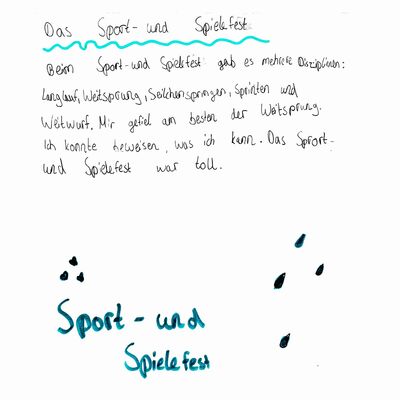 Das Sport- und Spielefest
Beim Sport-und Spielefest gab es mehrere Disziplinen:
Langlauf, Weitsprung, Seilchenspringen, Sprinten und
Weitwurf. Mir gefiel am besten der Weitsprung.
Ich konnte beweisen, was ich kann. Das Sport-
und Spielefest war toll.
Sport - und
Spielefest